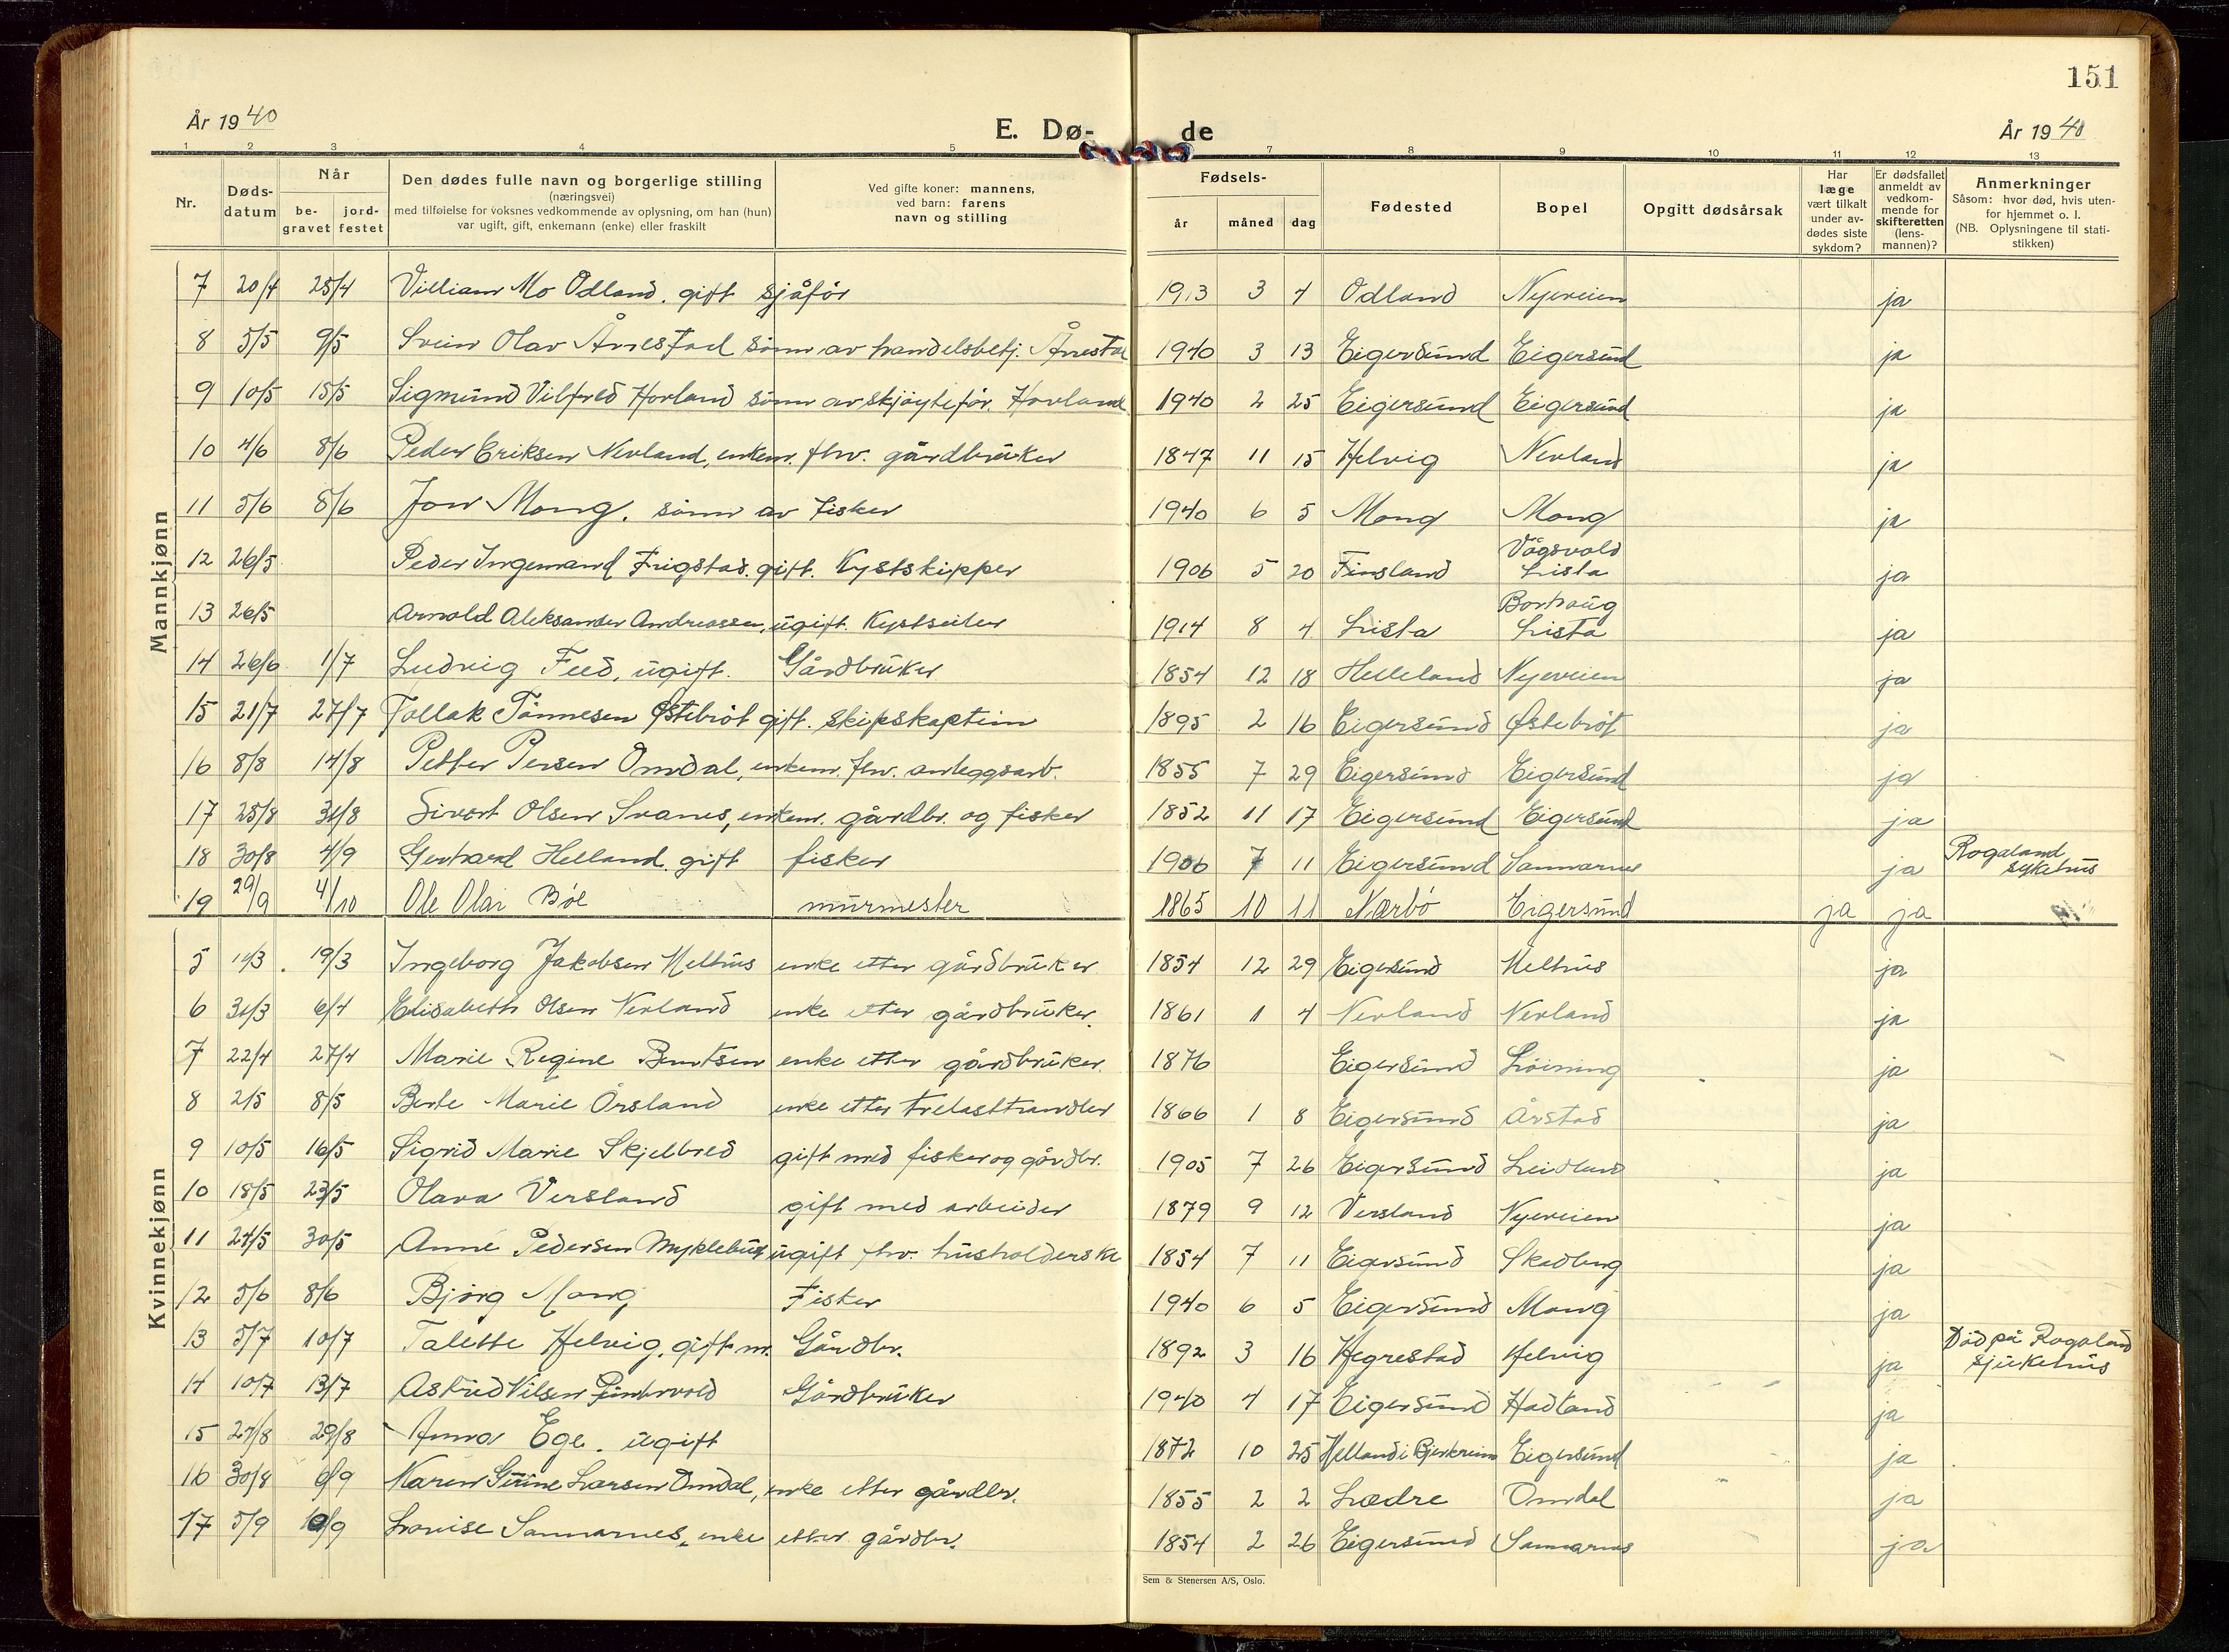 151
År 1940
E. Dø- de
År 1940
1 2 3 4 5 7 8 9 10 11 12 13
Nr.
Døds-
datum
Når
be-
gravet
jord-
festet
Den dødes fulle navn og borgerlige stilling
(næringsvei)
med tilføielse for voksnes vedkommende av oplysning, om han (hun)
var ugift, gift, enkemann (enke) eller fraskilt
Ved gifte koner: mannens,
ved barn: farens
navn og stilling
Fødsels-
år måned dag
Fødested
Bopel
Opgitt dødsårsak
Har
læge
vært tilkalt
under av-
dødes siste
sykdom?
Er dødsfallet
anmeldt av
vedkom-
mende for
skifteretten
(lens-
mannen)?
Anmerkninger
Såsom: hvor død, hvis uten-
for hjemmet o. l.
(NB. Oplysningene til stati-
stikken)
Mannkjønn
7 20/4 25/4 Villiam Mo Odland. gift sjåfør 1913 3 4 Odland Nyeveien ja
8 5/5 9/5 Svein Olav Årrestad sønn av handelsbetj. Årrestad 1940 3 13 Eigersund Eigersund ja
9 10/5 15/5 Sigmund Vilfred Hovland sønn av skjøytefør. Hovland 1940 2 25 Eigersund Eigersund ja
10 4/6 8/6 Peder Eriksen Nevland, enkem. fhv. gårdbruker 1847 11 15 Helvig Nevland ja
11 5/6 8/6 Jon Mong. sønn av fisker 1940 6 5 Mong Mong ja
12 26/5 Peder Ingemand Frigstad. gift. Kystskipper 1906 5 20 Finsland Vågsvold Lista ja
13 26/5 Arnold Aleksander Andreassen, ugift. Kystseiler 1914 8 4 Lista Borhaug Lista ja
14 26/6 1/7 Ludvig Feed, ugift. Gårdbruker 1854 12 18 Helleland Nyeveien ja
15 21/7 27/7 Tollak Tønnesen Østebrøt gift. skipskaptein 1895 2 16 Eigersund Østebrøt ja
16 8/8 14/8 Petter Persen Omdal, enkem. fhv. anleggsarb. 1855 7 29 Eigersund Eigersund ja
17 25/8 31/8 Sivert Olsen Svanes, enkem. gårdbr. og fisker 1852 11 17 Eigersund Eigersund ja
18 30/8 4/9 Gerhard Helland. gift fisker 1906 7 11 Eigersund Sannarnes ja Rogaland sykehus
19 29/9 4/10 Ole Olai Bøe murmester 1865 10 11 Nærbø Eigersund ja ja
Kvinnekjønn
5 14/3 19/3 Ingeborg Jakobsen Melhus enke etter gårdbruker 1854 12 29 Eigersund Melhus ja
6 31/3 6/4 Elisabeth Olsen Nevland enke etter gårdbruker. 1861 1 4 Nevland Nevland ja
7 22/4 27/4 Marie Regine Bentsen enke etter gårdbruker. 1876 Eigersund Løining ja
8 2/5 8/5 Berte Marie Ørsland enke etter trelasthandler 1866 1 8 Eigersund Årstad ja
9 10/5 16/5 Sigrid Marie Skjelbred gift med fisker og gårdbr. 1905 7 26 Eigersund Leidland ja
10 18/5 23/5 Olava Versland gift med arbeider 1879 9 12 Versland Nyeveien ja
11 24/5 30/5 Anne Pedersen Myklebust ugift fhv. husholderske 1854 7 11 Eigersund Skadberg ja
12 5/6 8/6 Bjørg Mong Fisker 1940 6 5 Eigersund Mong ja
13 5/7 10/7 Talette Helvig. gift m. Gårdbr. 1892 3 16 Hegrestad Helvig ja Død på Rogaland sjukehus
14 10/7 13/7 Astrid Nilsen Gårdbruker 1940 4 17 Eigersund Hadland ja
15 24/8 29/8 Anna Ege. ugift 1872 10 25 Helland i Bjerkreim Eigersund ja
16 30/8 6/9 Karen Gurine Larsen Omdal, enke etter gårdbr. 1855 2 2 Lædre Omdal ja
17 5/9 10/9 Lovise Sannarnes, enke etter gårdbr. 1854 2 26 Eigersund Sannarnes ja
Sem & Stenersen A/S, Oslo.